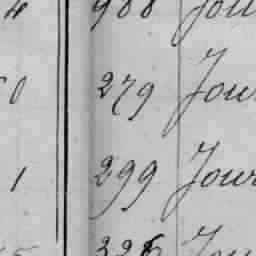 4 988 Jou
0 279 Jou
1 299 Jour
326 Jou